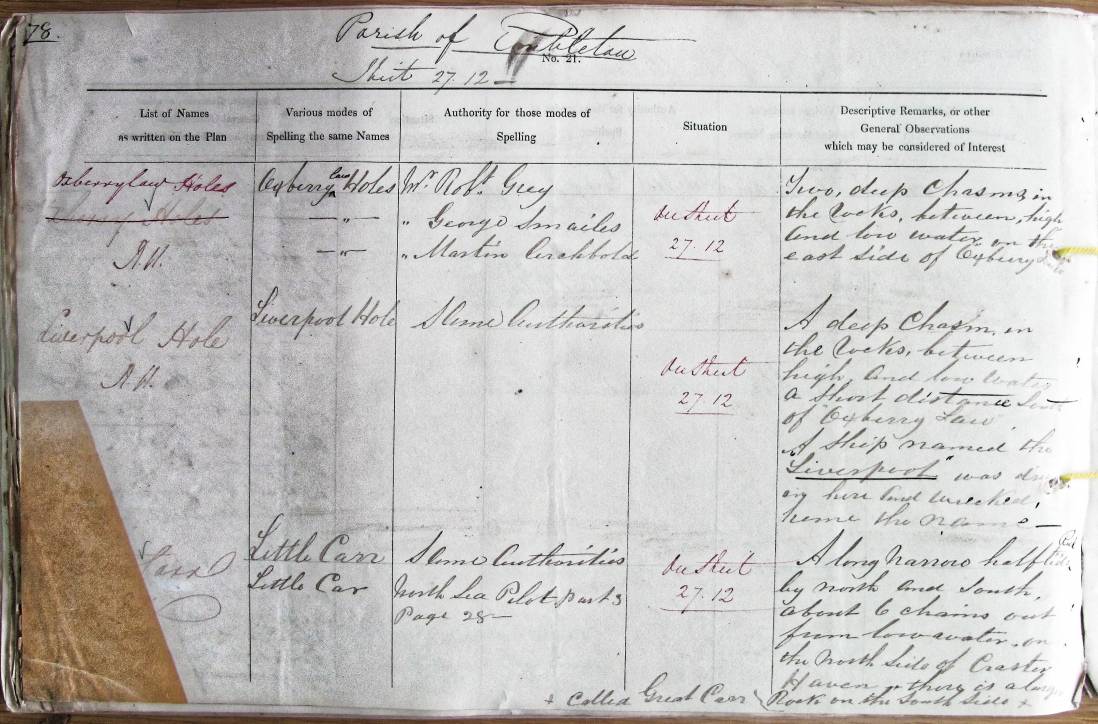 78.
Parish of Embleton
No. 21.
Sheet 27.12
List of Names
as written on the Plan
Various modes of
Spelling the same Names
Authority for those modes of
Spelling
Situation
Descriptive Remarks, or other
General Observations
which may be considered of Interest
Oxberrylaw Holes
Holes
N.H.
Oxberry law Holes
— " —
— " —
Mr. Robt. Grey
" George Smailes
" Martin Archbold
On Sheet
27.12
Two, deep Chasms in
the rocks, between, high
and low water, on the
east side of Oxberry
Liverpool Hole
Liverpool Hole
Same Authorities
On Sheet
27.12
A deep Chasm, in
the rocks, between
high, and low water
a short distance
of Oxberry Law
A Ship named the
"Liverpool" was
on here and wrecked,
hence the name —
Carr
Little Carr
Little Car
Same Authorities
North Sea Pilot. part 3
Page 28 —
On Sheet
27.12
A long narrow half tide
by north and South,
about 6 chains out
from low water, on
the North Side of Craster
Haven, there is a large
Rock on the South Side +
+ called Great Carr